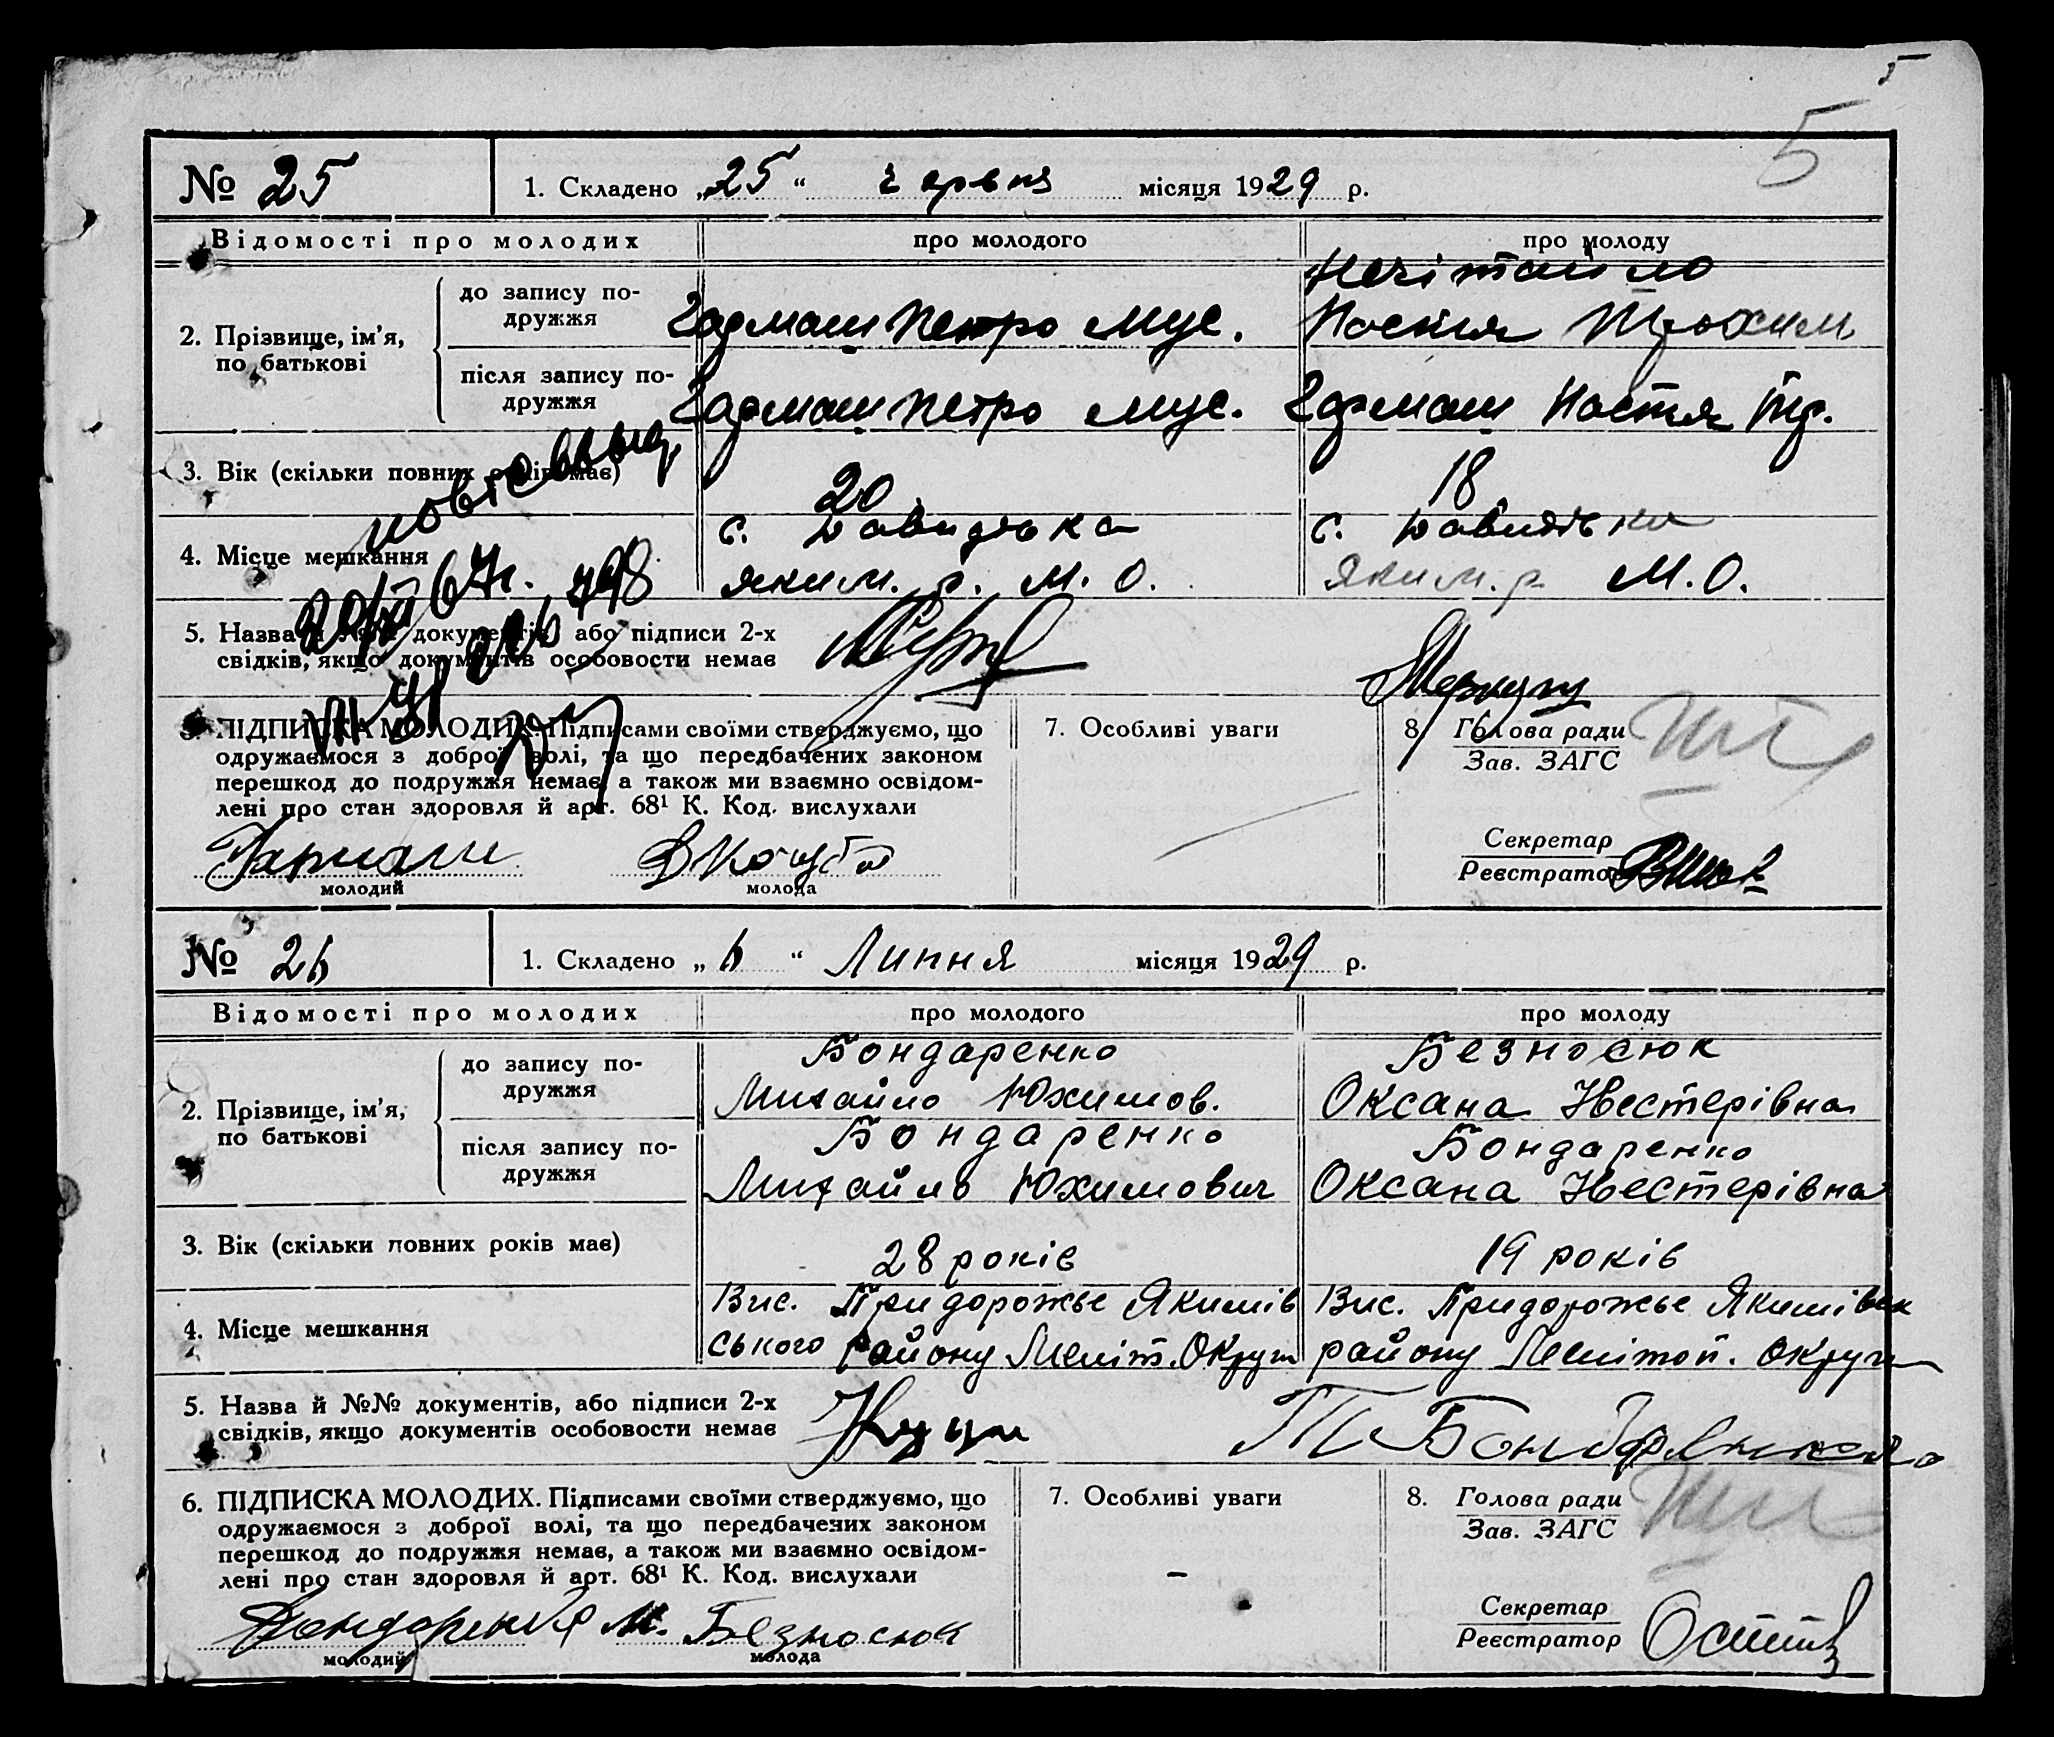 5
5
№ 25
1. Складено „25“ червня місяця 1929 р.
Відомості про молодих
про молодого
про молоду
2. Прізвище, ім'я, по батькові
до запису подружжя
Гармаш Петро Мус.
Нечітайло
Настя Трохим
після запису подружжя
Гармаш Петро Мус.
Гармаш Настя Тр.
3. Вік (скільки повних років має)
20
18
4. Місце мешкання
с. Давидівка
Яким. р. М. О.
с. Давидівка
Яким. р. М. О.
5. Назва й №№ документів, або підписи 2-х
свідків, якщо документів особовости немає
6. ПІДПИСКА МОЛОДИХ. Підписами своїми стверджуємо, що
одружаємося з доброї волі, та що передбачених законом
перешкод до подружжя немає, а також ми взаємно освідом-
лені про стан здоров'я й арт. 68¹ К. Код. вислухали
Гармаш
молодий
молода
7. Особливі уваги
8. Голова ради
Зав. ЗАГС
Секретар
Реєстратор
№ 26
1. Складено „6“ Липня місяця 1929 р.
Відомості про молодих
про молодого
про молоду
2. Прізвище, ім'я,
по батькові
до запису по-
дружжя
Бондаренко
Михайло Юхимов.
Безносюк
Оксана Нестерівна
після запису по-
дружжя
Бондаренко
Михайло Юхимович
Бондаренко
Оксана Нестерівна
3. Вік (скільки повних років має)
28 років
19 років
4. Місце мешкання
Вис. Придорожьє Якимів
ського району Меліт. Округи
Вис. Придорожьє Якимівськ
району Мелітоп. округи
5. Назва й №№ документів, або підписи 2-х
свідків, якщо документів особовости немає
6. ПІДПИСКА МОЛОДИХ. Підписами своїми стверджуємо, що
одружаємося з доброї волі, та що передбачених законом
перешкод до подружжя немає, а також ми взаємно освідом-
лені про стан здоровля й арт. 68¹ К. Код. вислухали
Бондаренко М. Безносюк
молодий
молода
7. Особливі уваги
–
8. Голова ради
Зав. ЗАГС
Секретар
Реєстратор